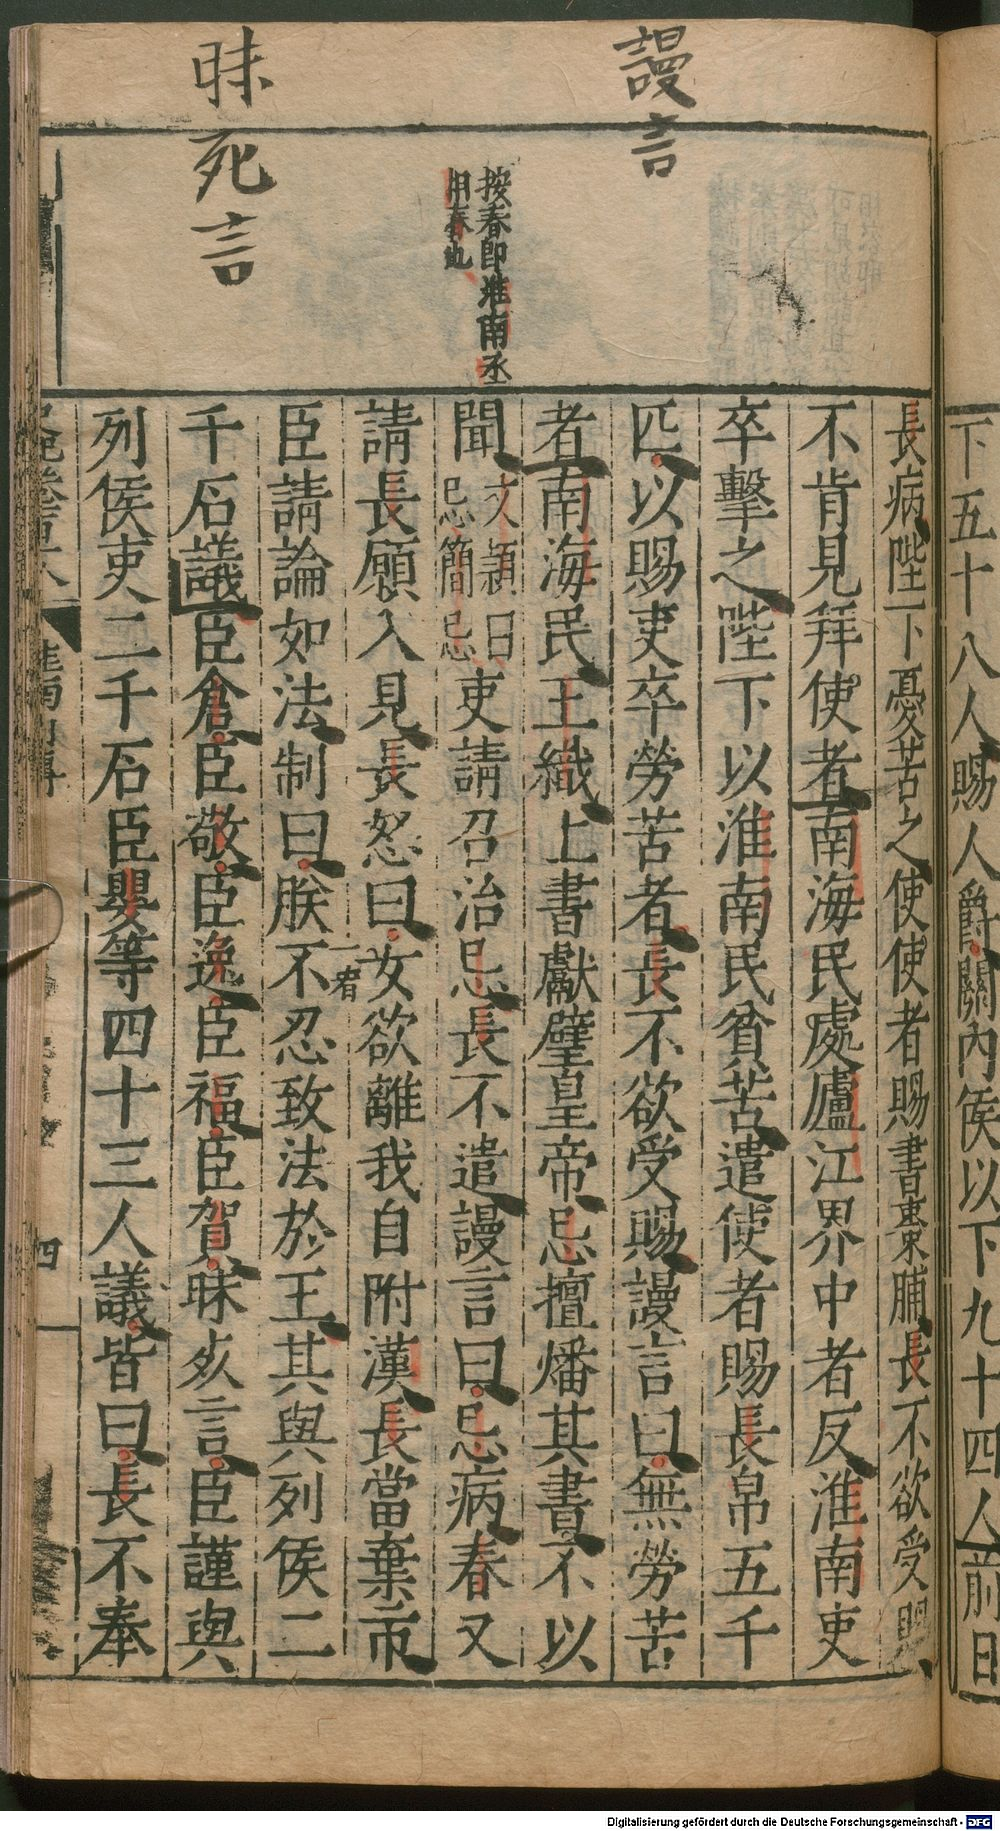 下五十八人賜人爵關內侯以下九十四人前日
謾言
昧死言
按春即淮南丞
相春也
長病陛下憂苦之使使者賜書棗脯長不欲受賜
不肯見拜使者南海民處廬江界中者反淮南吏
卒擊之陛下以淮南民貧苦遣使者賜長帛五千
匹以賜吏卒勞苦者長不欲受賜謾言曰無勞苦
者南海民王織上書獻璧皇帝忌擅燔其書不以
聞文穎曰忌簡忌吏請召治忌長不遣謾言曰忌病春又
請長願入見長怒曰女欲離我自附漢長當棄市
一有
臣請論如法制曰朕不忍致法於王其與列侯二
千石議臣倉臣敬臣逸臣福臣賀昧死言臣謹與
列侯吏二千石臣嬰等四十三人議皆曰長不奉
四
Digitalisierung gefördert durch die Deutsche Forschungsgemeinschaft - DFG